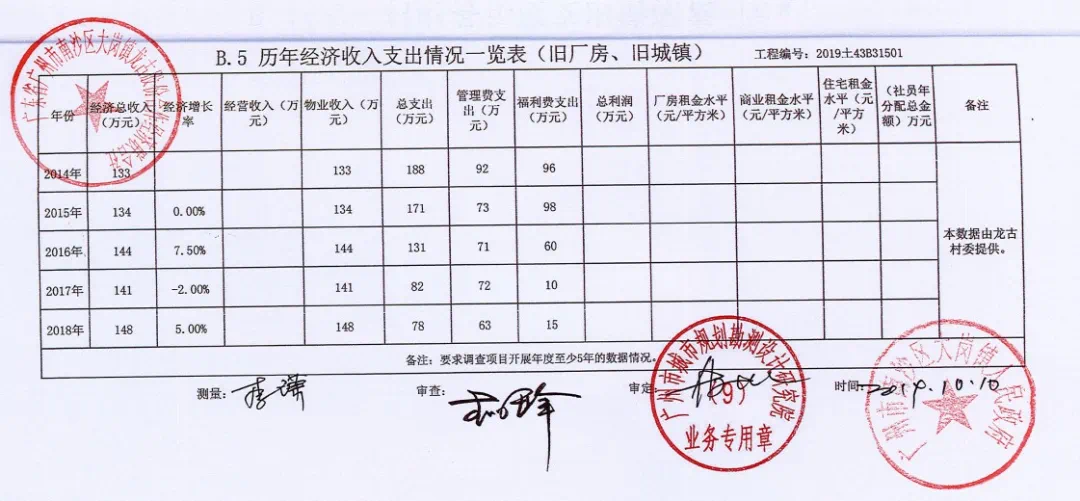 B.5 历年经济收入支出情况一览表（旧厂房、旧城镇）
工程编号：2019土43B31501
年份 经济总收入（万元） 经济增长率 经营收入（万元） 物业收入（万元） 总支出（万元） 管理费支出（万元） 福利费支出（万元） 总利润（万元） 厂房租金水平（元/平方米） 商业租金水平（元/平方米） 住宅租金水平（元/平方米） （社员年分配总金额）万元 备注
2014年 133 133 188 92 96
2015年 134 0.00% 134 171 73 98
2016年 144 7.50% 144 131 71 60
2017年 141 -2.00% 141 82 72 10
2018年 148 5.00% 148 78 63 15
本数据由龙古
村委提供。
备注：要求调查项目开展年度至少5年的数据情况。
测量： 审查： 审定： 时间：
广州市城市规划勘测设计研究院
（9）
业务专用章
广州市南沙区大岗镇人民政府
广东省广州市南沙区大岗镇龙古